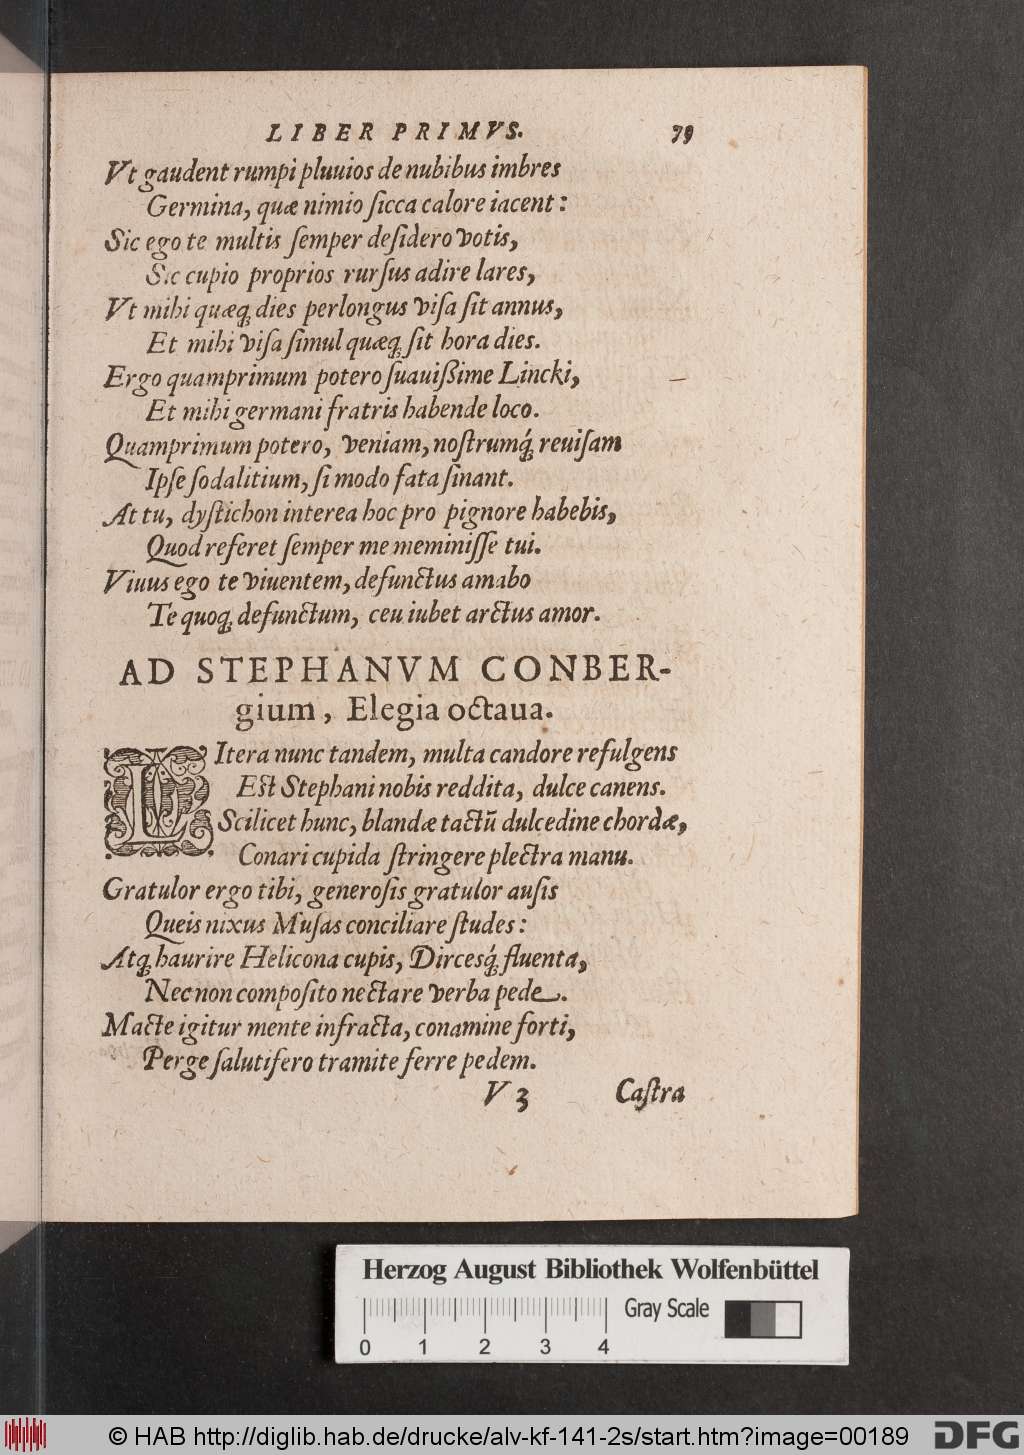 LIBER PRIMVS. 79
Vt gaudent rumpi pluuios de nubibus imbres
Germina, quæ nimio ſicca calore iacent:
Sic ego te multis ſemper deſidero votis,
Sic cupio proprios rurſus adire lares,
Vt mihi quæq; dies perlongus viſa ſit annus,
Et mihi viſa ſimul quæq; ſit hora dies.
Ergo quamprimum potero ſuauißime Lincki,
Et mihi germani fratris habende loco.
Quamprimum potero, veniam, noſtrumq́; reuiſam
Ipſe ſodalitium, ſi modo fata ſinant.
At tu, dyſtichon interea hoc pro pignore habebis,
Quod referet ſemper me meminiſſe tui.
Viuus ego te viuentem, defunctus amabo
Te quoq; defunctum, ceu iubet arctus amor.
AD STEPHANVM CONBER-
gium, Elegia octaua.
LItera nunc tandem, multa candore refulgens
Eſt Stephani nobis reddita, dulce canens.
Scilicet hunc, blandæ tactũ dulcedine chordæ,
Conari cupida ſtringere plectra manu.
Gratulor ergo tibi, generoſis gratulor auſis
Queis nixus Muſas conciliare ſtudes:
Atq; haurire Helicona cupis, Dircesq́; fluenta,
Nec non compoſito nectare verba pede.
Macte igitur mente infracta, conamine forti,
Perge ſalutifero tramite ferre pedem.
V 3 Caſtra
Herzog August Bibliothek Wolfenbüttel
Gray Scale
0 1 2 3 4
© HAB http://diglib.hab.de/drucke/alv-kf-141-2s/start.htm?image=00189
DFG